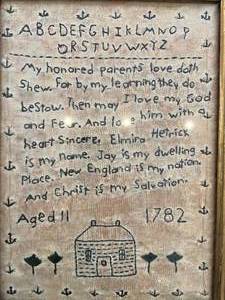 ABCDEFGHIKLMNOP
QRSTUVWXYZ
My honored parents love doth
Shew. For by me learning they do
bestow. Then may I love my God
and Fear. And love him with a
heart Sincere, Elmira Hetrick
is my name. Jay is my dwelling
Place. New England is my nation.
And Christ is my Salvation.
Aged 11 1782